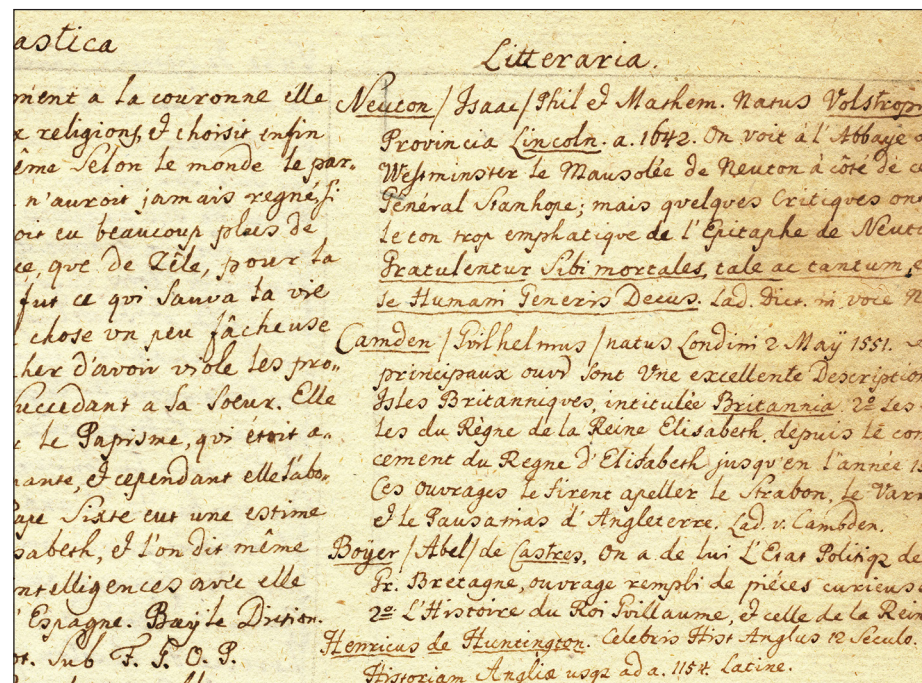 astica
ment a la couronne elle
x religions, et choisit enfin
ême Selon le monde le par-
n'auroit jamais regné, si
oit eu beaucoup plus de
ce, que de Zèle, pour la
fut ce qui Sauva la vie
chose vn peu fâcheuse
cher d'avoir violé les pro-
Succedant a sa Soeur. Elle
le Papisme, qui etoit a-
nante, et cependant elle l'abo-
Pape Sixte eut une estime
sabeth, et l'on dit même
ntelligences avec elle
Espagne. Bayle Diction.
ot. Sub F. T. O. P.
Litteraria.
Neuton / Isaac / Phil et Mathem. Natus Volstrop
Provincia Lincoln. a. 1642. On voit à l'Abbaye
Westminster le Mausolée de Neuton à côté de ce
Général Stanhope; mais quelques Critiques ont
le ton trop emphatique de l'Epitaphe de Neuto
Gratulentur Sibi mortales, tale ac tantum
se Humani Generis Decus. Lad. Dict. in voce N
Camden / Guilhelmus / natus Londini 2 Maÿ 1551.
principaux ouvr Sont Vne excellente Description
Isles Britanniques, intitulée Britannia. 2º Les
les du Règne de la Reine Elisabeth, depuis le com
cement du Regne d'Elisabeth jusqu'en l'année 1
Ces ouvrages le firent apeller le Strabon, le Varr
et le Pausanias d'Angleterre. Lad. v. Cambden.
Boÿer / Abel / de Castres, On a de lui L'Etat Politiq de
Gr. Bretagne, ouvrage rempli de piéces curieus.
2º L'Histoire du Roi Guillaume, et celle de la Rein
Henricus de Huntington. Celebris Hist Anglus 12 Seculo.
Historiam Angliæ usq ad a. 1154. Latine.